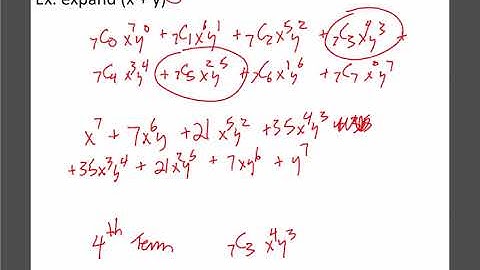 Ex: expand (x + y)
₇C₀ x⁷y⁰ + ₇C₁x⁶y¹ + ₇C₂x⁵y² + ₇C₃x⁴y³ +
₇C₄ x³y⁴ + ₇C₅x²y⁵ + ₇C₆x¹y⁶ + ₇C₇ x⁰y⁷
x⁷ + 7x⁶y + 21x⁵y² + 35x⁴y³
+35x³y⁴ + 21x²y⁵ + 7xy⁶ + y⁷
4th Term ₇C₃ x⁴y³